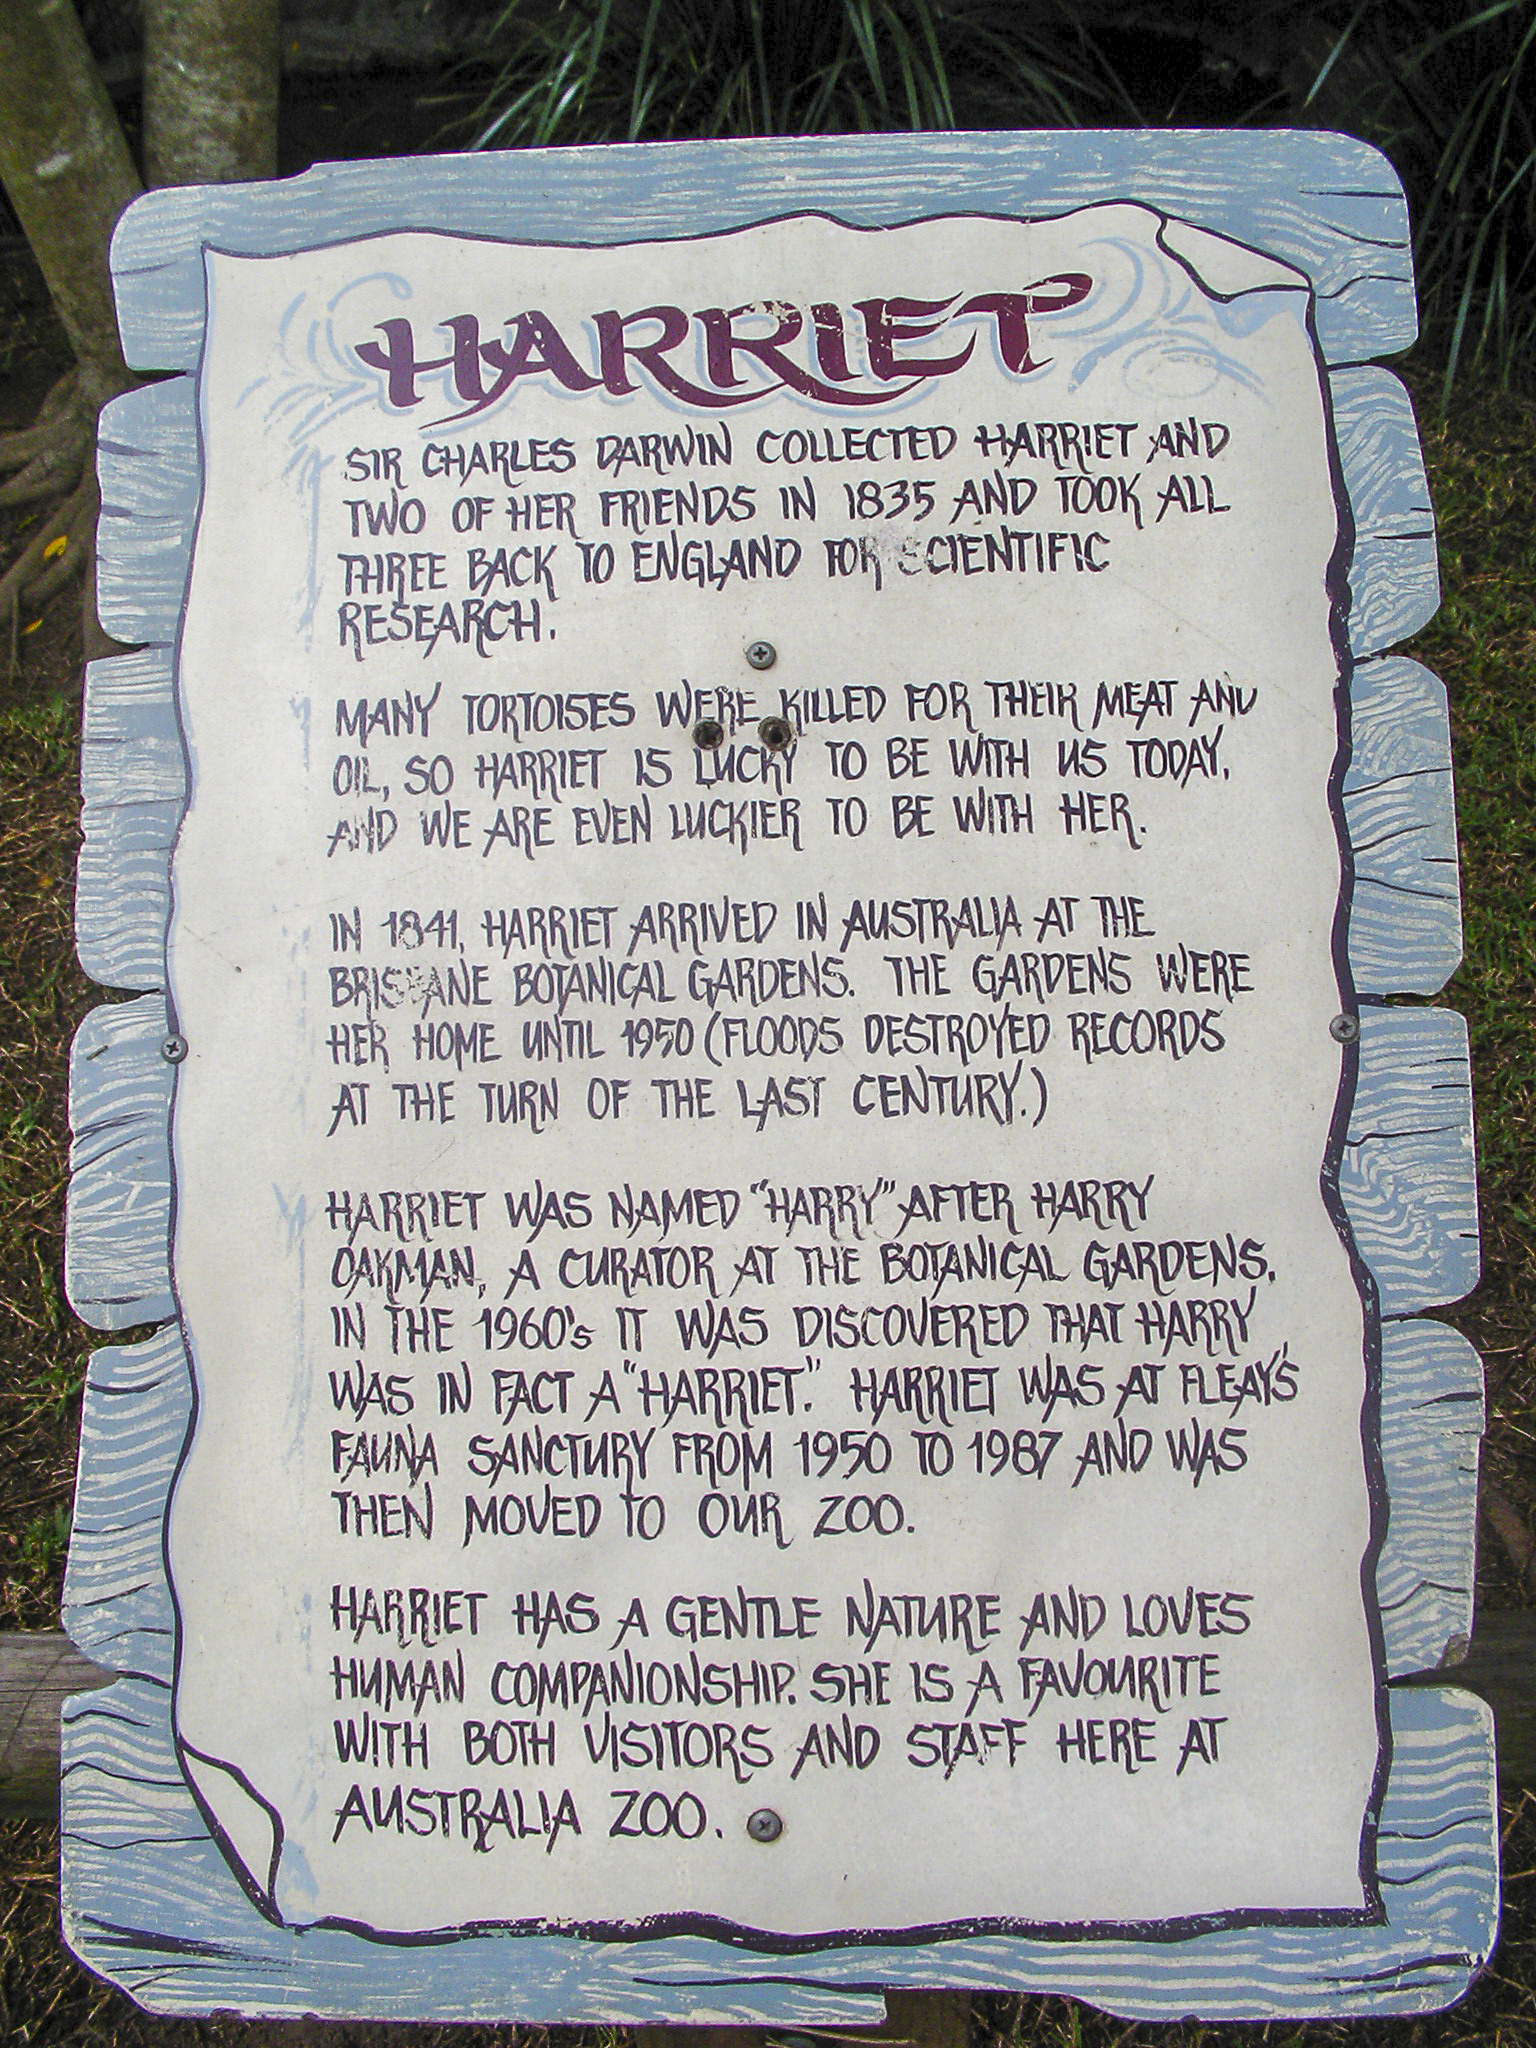 HARRIET
SIR CHARLES DARWIN COLLECTED HARRIET AND
TWO OF HER FRIENDS IN 1835 AND TOOK ALL
THREE BACK TO ENGLAND FOR SCIENTIFIC
RESEARCH.
MANY TORTOISES WERE KILLED FOR THEIR MEAT AND
OIL, SO HARRIET IS LUCKY TO BE WITH US TODAY,
AND WE ARE EVEN LUCKIER TO BE WITH HER.
IN 1841, HARRIET ARRIVED IN AUSTRALIA AT THE
BRISBANE BOTANICAL GARDENS. THE GARDENS WERE
HER HOME UNTIL 1950 (FLOODS DESTROYED RECORDS
AT THE TURN OF THE LAST CENTURY.)
HARRIET WAS NAMED "HARRY" AFTER HARRY
OAKMAN, A CURATOR AT THE BOTANICAL GARDENS.
IN THE 1960's IT WAS DISCOVERED THAT HARRY
WAS IN FACT A "HARRIET." HARRIET WAS AT FLEAY'S
FAUNA SANCTURY FROM 1950 TO 1987 AND WAS
THEN MOVED TO OUR ZOO.
HARRIET HAS A GENTLE NATURE AND LOVES
HUMAN COMPANIONSHIP. SHE IS A FAVOURITE
WITH BOTH VISITORS AND STAFF HERE AT
AUSTRALIA ZOO.